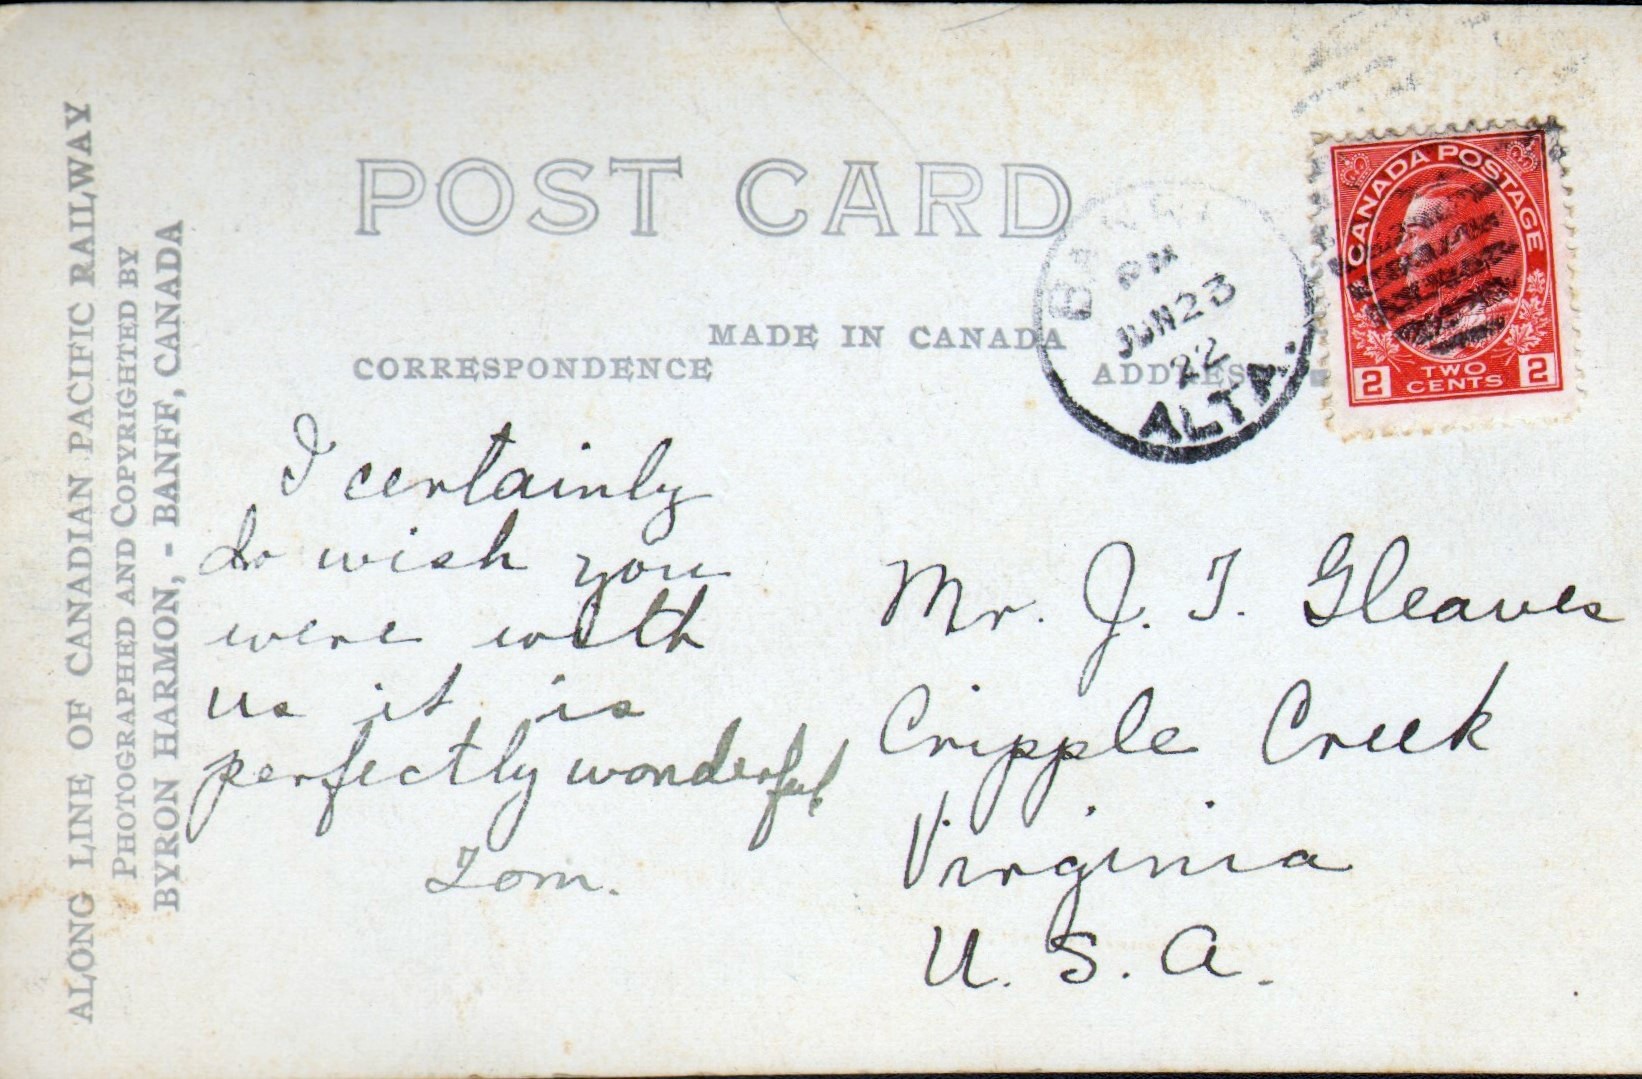 ALONG LINE OF CANADIAN PACIFIC RAILWAY
PHOTOGRAPHED AND COPYRIGHTED BY
BYRON HARMON, - BANFF, CANADA
POST CARD
MADE IN CANADA
CORRESPONDENCE
ADDRESS
BANFF
PM
JUN 23
22
ALTA.
CANADA POSTAGE
2 TWO CENTS 2
I certainly
do wish you
were with
us it is
perfectly wonderful.
Tom.
Mr. J. T. Gleaves
Cripple Creek
Virginia
U. S. A.